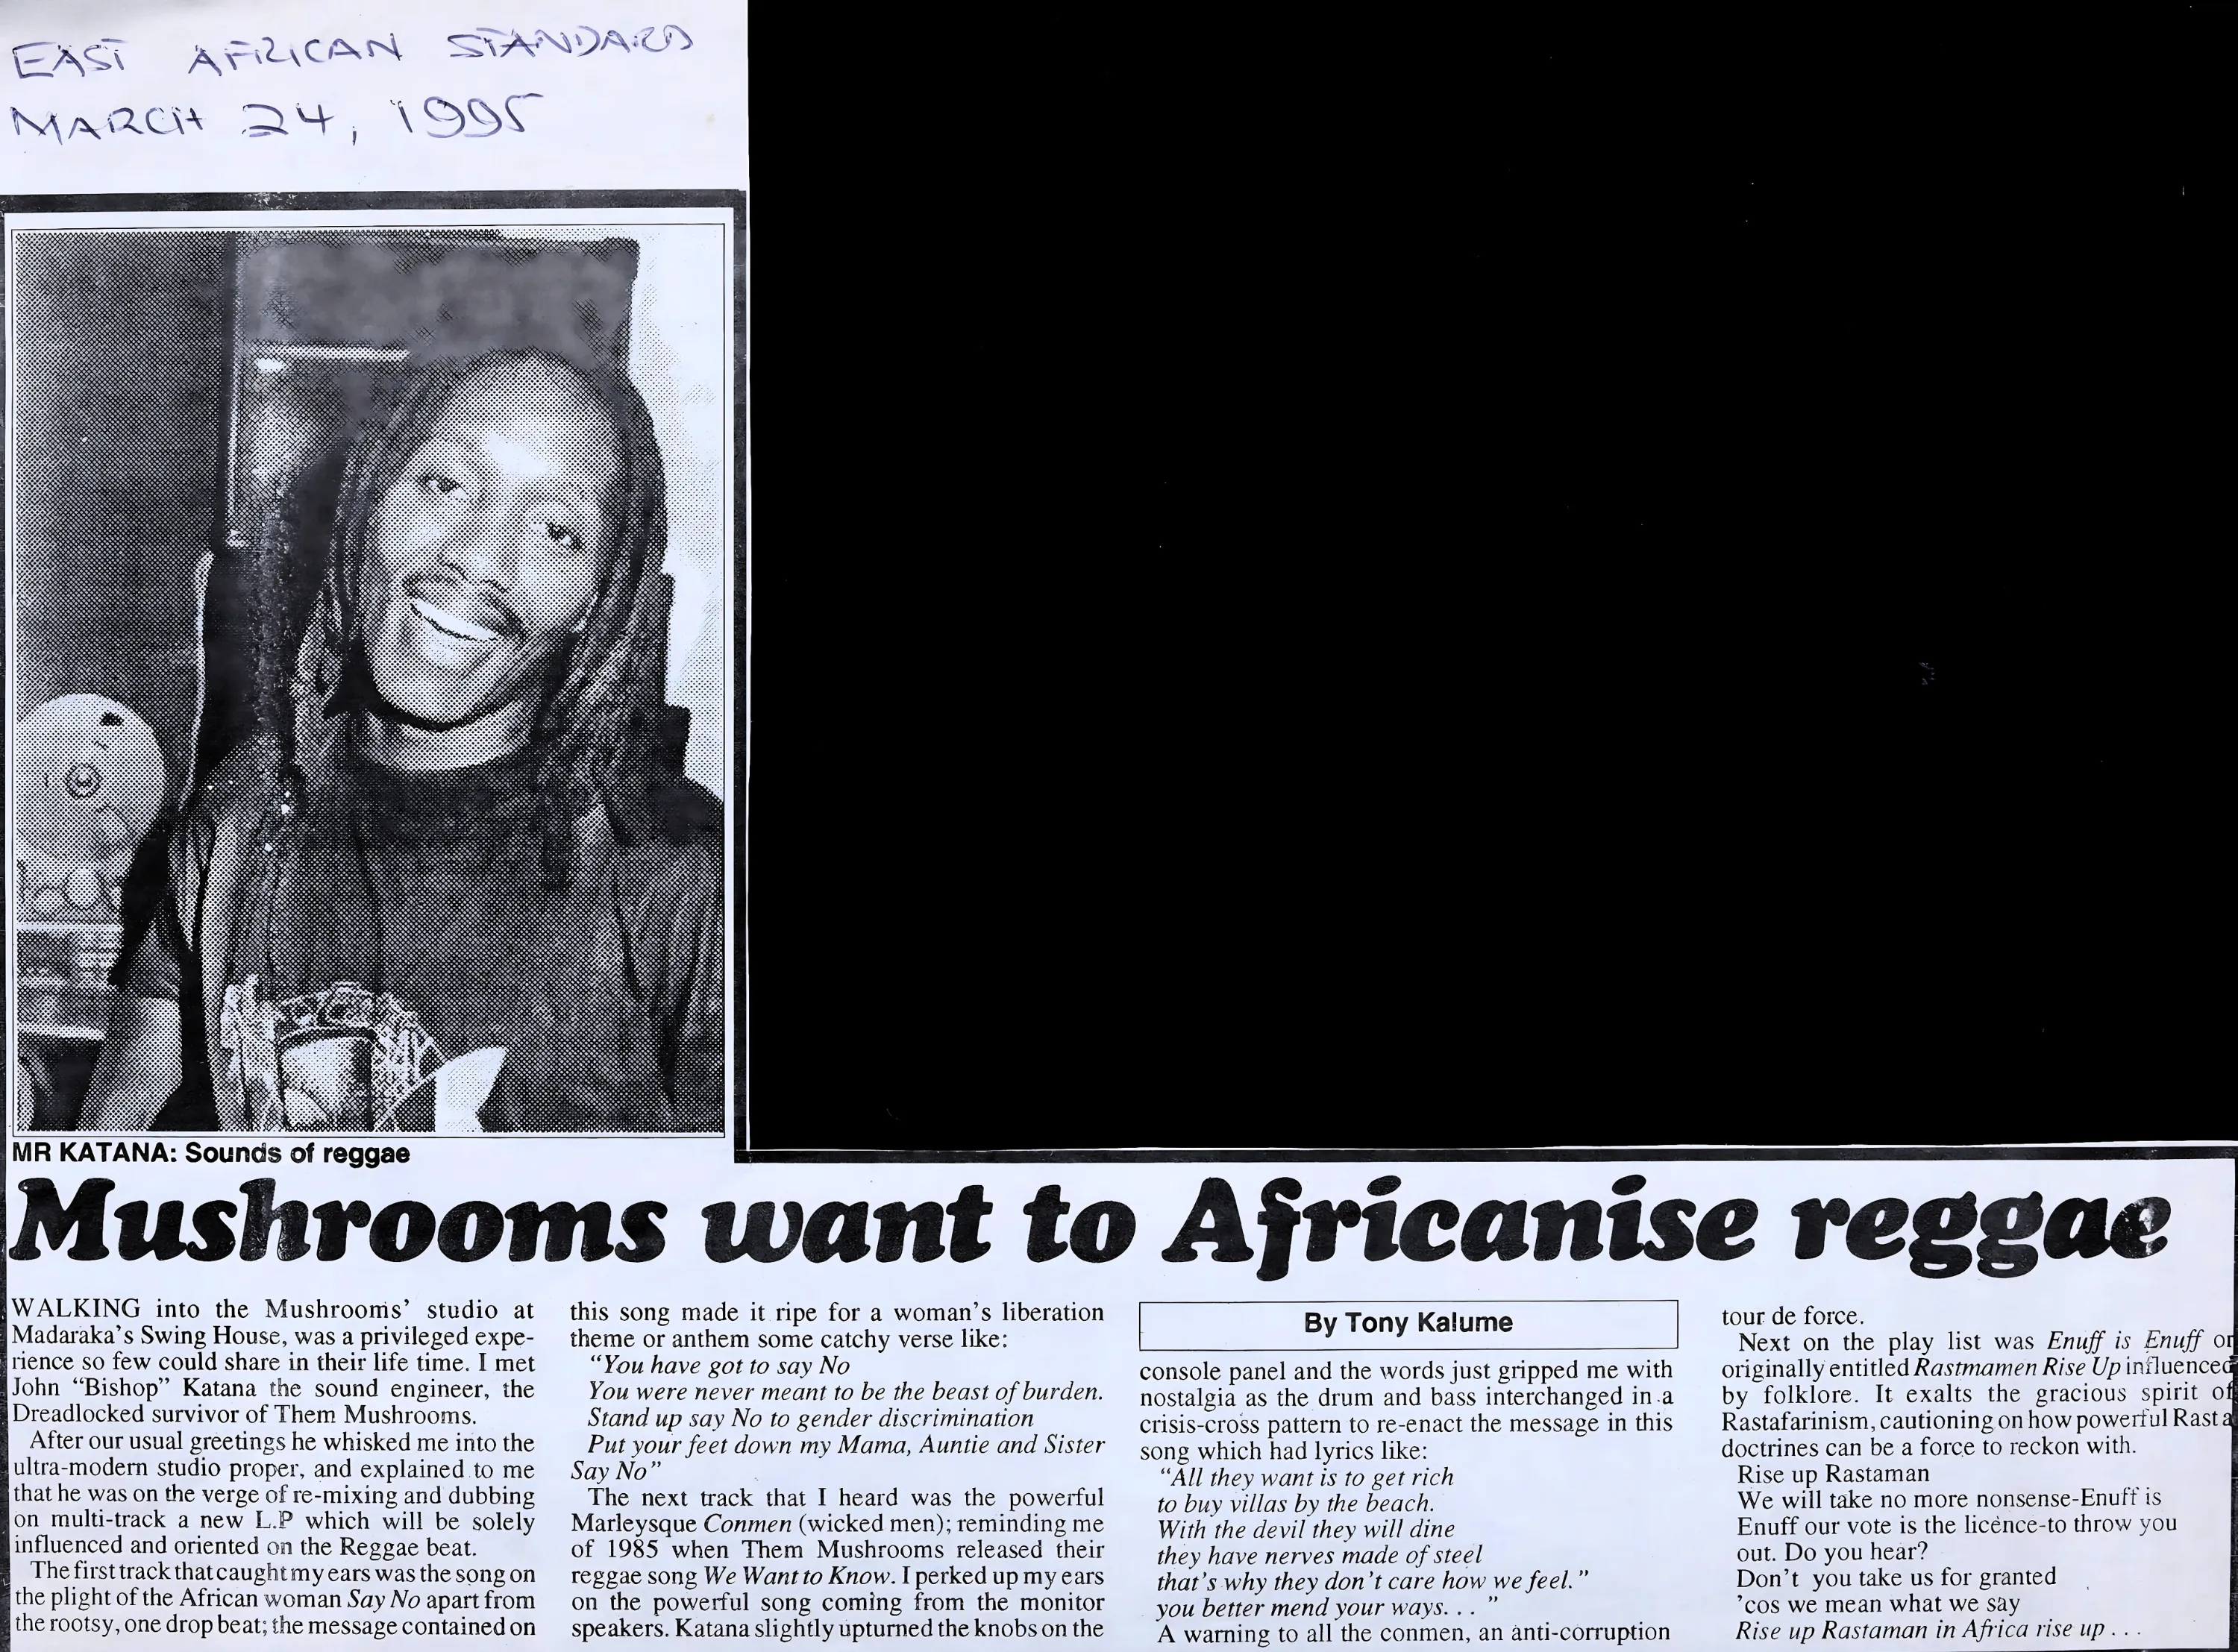 EAST AFRICAN STANDARD
MARCH 24, 1995
MR KATANA: Sounds of reggae
Mushrooms want to Africanise reggae
WALKING into the Mushrooms' studio at
Madaraka's Swing House, was a privileged expe-
rience so few could share in their life time. I met
John "Bishop" Katana the sound engineer, the
Dreadlocked survivor of Them Mushrooms.
After our usual greetings he whisked me into the
ultra-modern studio proper, and explained to me
that he was on the verge of re-mixing and dubbing
on multi-track a new L.P which will be solely
influenced and oriented on the Reggae beat.
The first track that caught my ears was the song on
the plight of the African woman Say No apart from
the rootsy, one drop beat; the message contained on
this song made it ripe for a woman's liberation
theme or anthem some catchy verse like:
"You have got to say No
You were never meant to be the beast of burden.
Stand up say No to gender discrimination
Put your feet down my Mama, Auntie and Sister
Say No"
The next track that I heard was the powerful
Marleysque Conmen (wicked men); reminding me
of 1985 when Them Mushrooms released their
reggae song We Want to Know. I perked up my ears
on the powerful song coming from the monitor
speakers. Katana slightly upturned the knobs on the
By Tony Kalume
console panel and the words just gripped me with
nostalgia as the drum and bass interchanged in a
crisis-cross pattern to re-enact the message in this
song which had lyrics like:
"All they want is to get rich
to buy villas by the beach.
With the devil they will dine
they have nerves made of steel
that's why they don't care how we feel."
you better mend your ways. . . "
A warning to all the conmen, an anti-corruption
tour de force.
Next on the play list was Enuff is Enuff or
originally entitled Rastmamen Rise Up influenced
by folklore. It exalts the gracious spirit of
Rastafarinism, cautioning on how powerful Rasta
doctrines can be a force to reckon with.
Rise up Rastaman
We will take no more nonsense-Enuff is
Enuff our vote is the licence-to throw you
out. Do you hear?
Don't you take us for granted
'cos we mean what we say
Rise up Rastaman in Africa rise up . . .